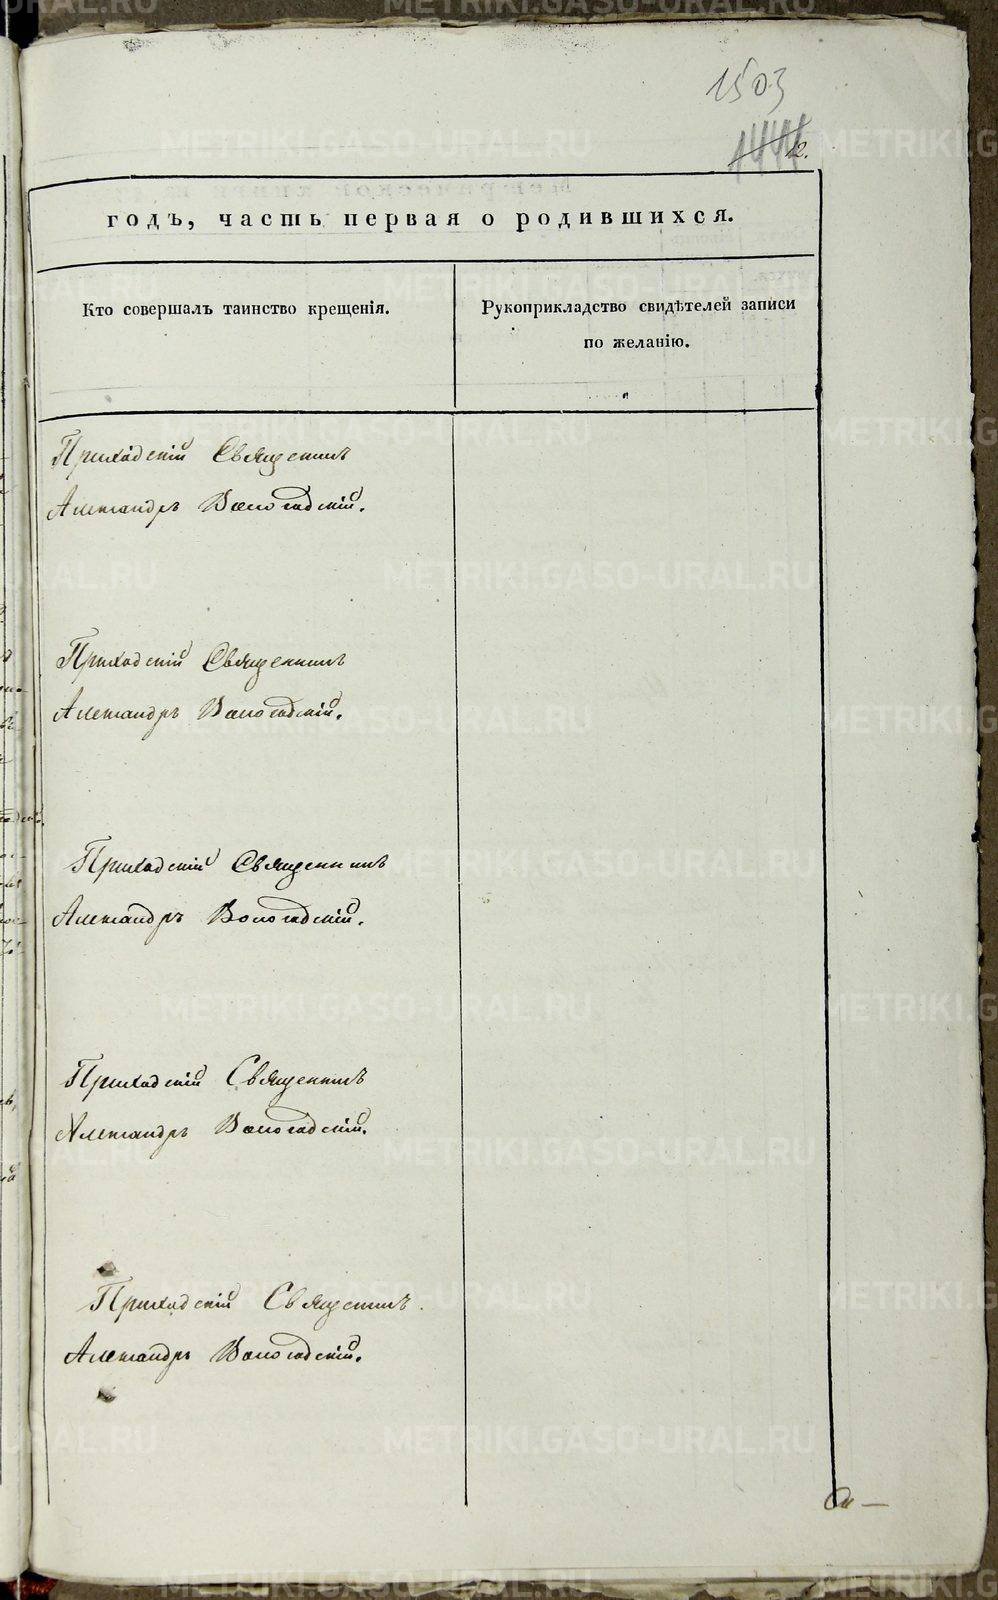 1503
12.
годъ, часть первая о родившихся.
Кто совершалъ таинство крещенія.
Рукоприкладство свидѣтелей записи
по желанію.
Приходскій Священникъ
Александръ Вологодскій.
Приходскій Священникъ
Александръ Вологодскій.
Приходскій Священникъ
Александръ Вологодскій.
Приходскій Священникъ
Александръ Вологодскій.
Приходскій Священникъ
Александръ Вологодскій.
METRIKI.GASO-URAL.RU